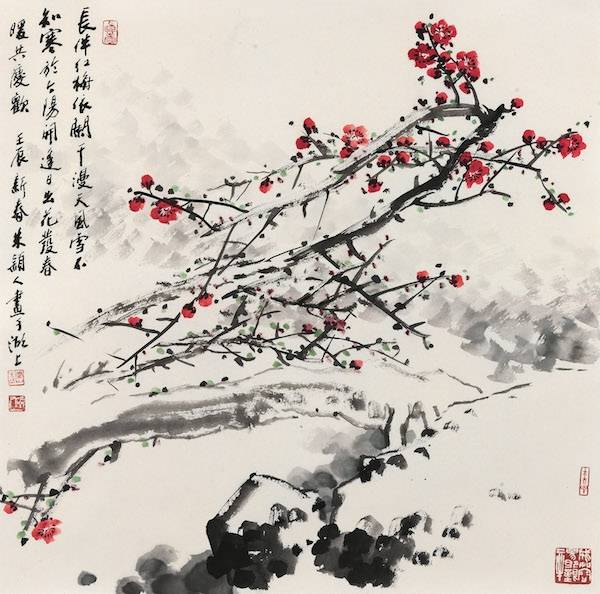 長伴红梅依闌干漫天風雪不
知寒於今陽開日出花發春
暖共慶歡 壬辰新春 朱穎人畫于湖上